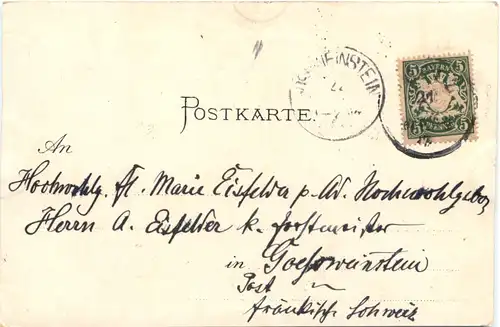 POSTKARTE.
5 BAYERN 5
21
5 5
An
Hochwohlg. Fl. Marie Eisfelder p. Ad. Hochwohlgeb.
Herrn A. Eisfelder k. Forstmeister
in Goessweinstein
Post
fränkische Schweiz